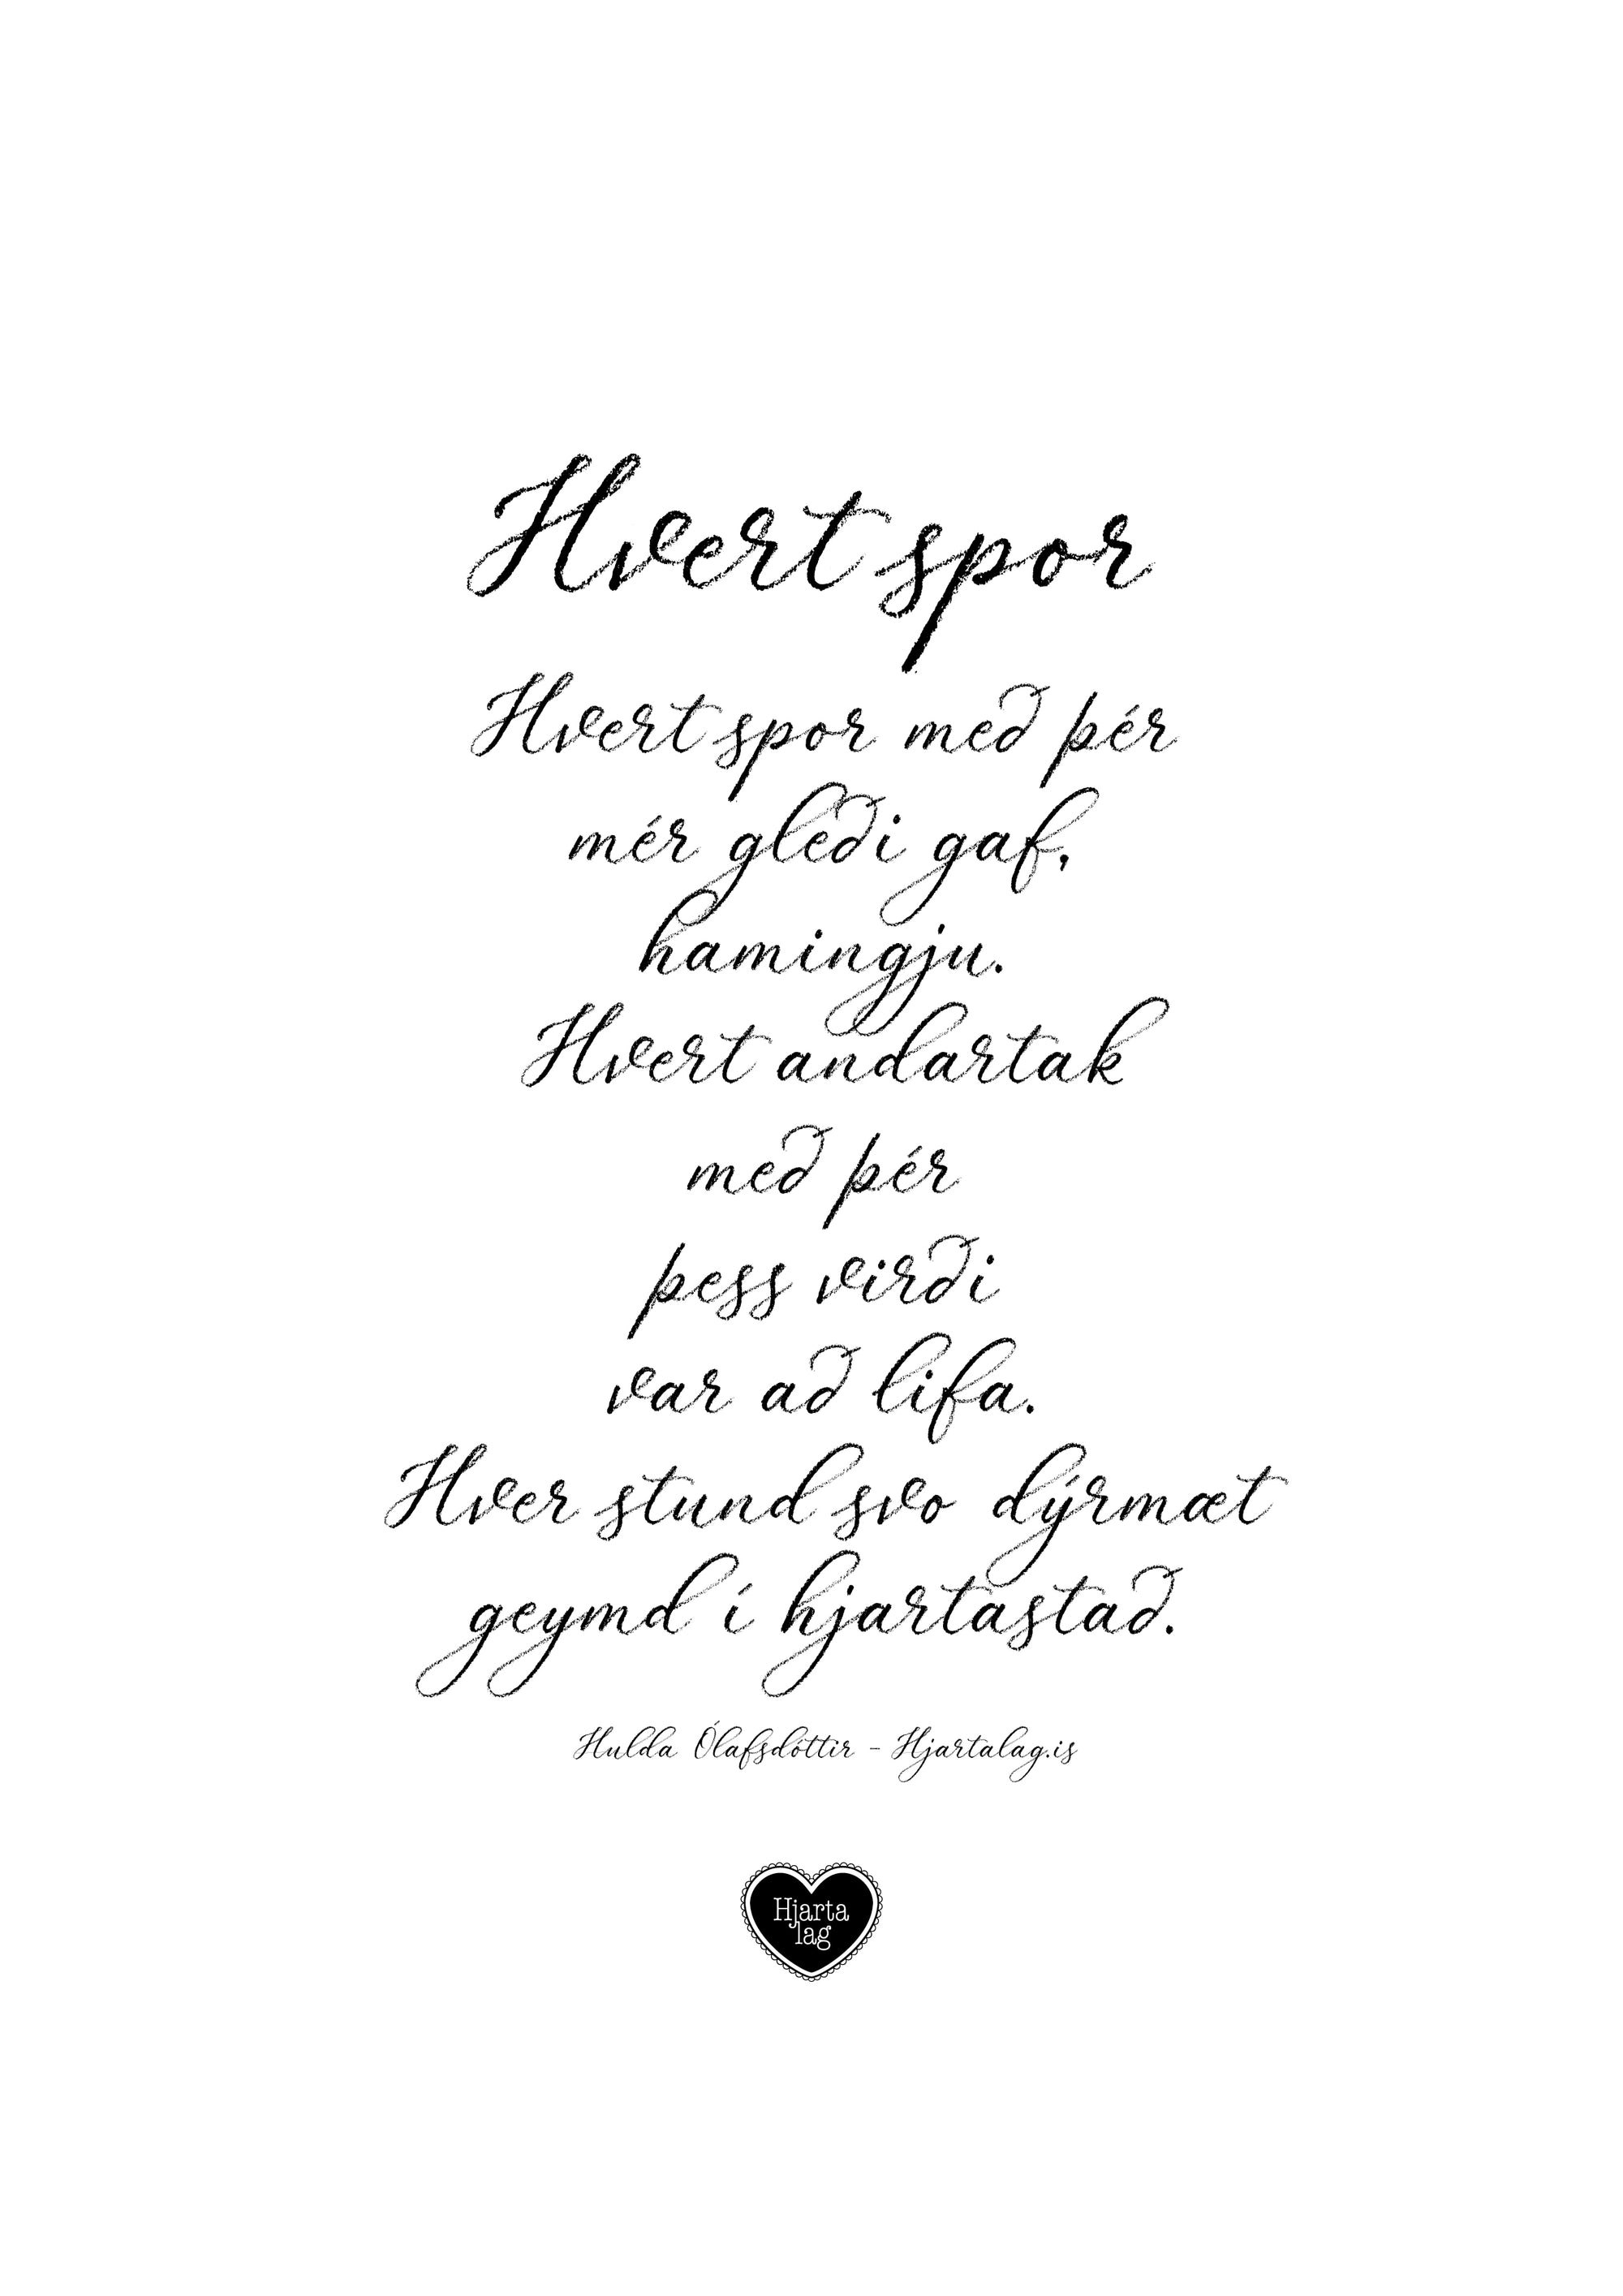 Hvert spor
Hvert spor með þér
mér gleði gaf,
hamingju.
Hvert andartak
með þér
þess virði
var að lifa.
Hver stund svo dýrmæt
geymd í hjartastað.
Hulda Ólafsdóttir - Hjartalag.is
Hjarta
lag